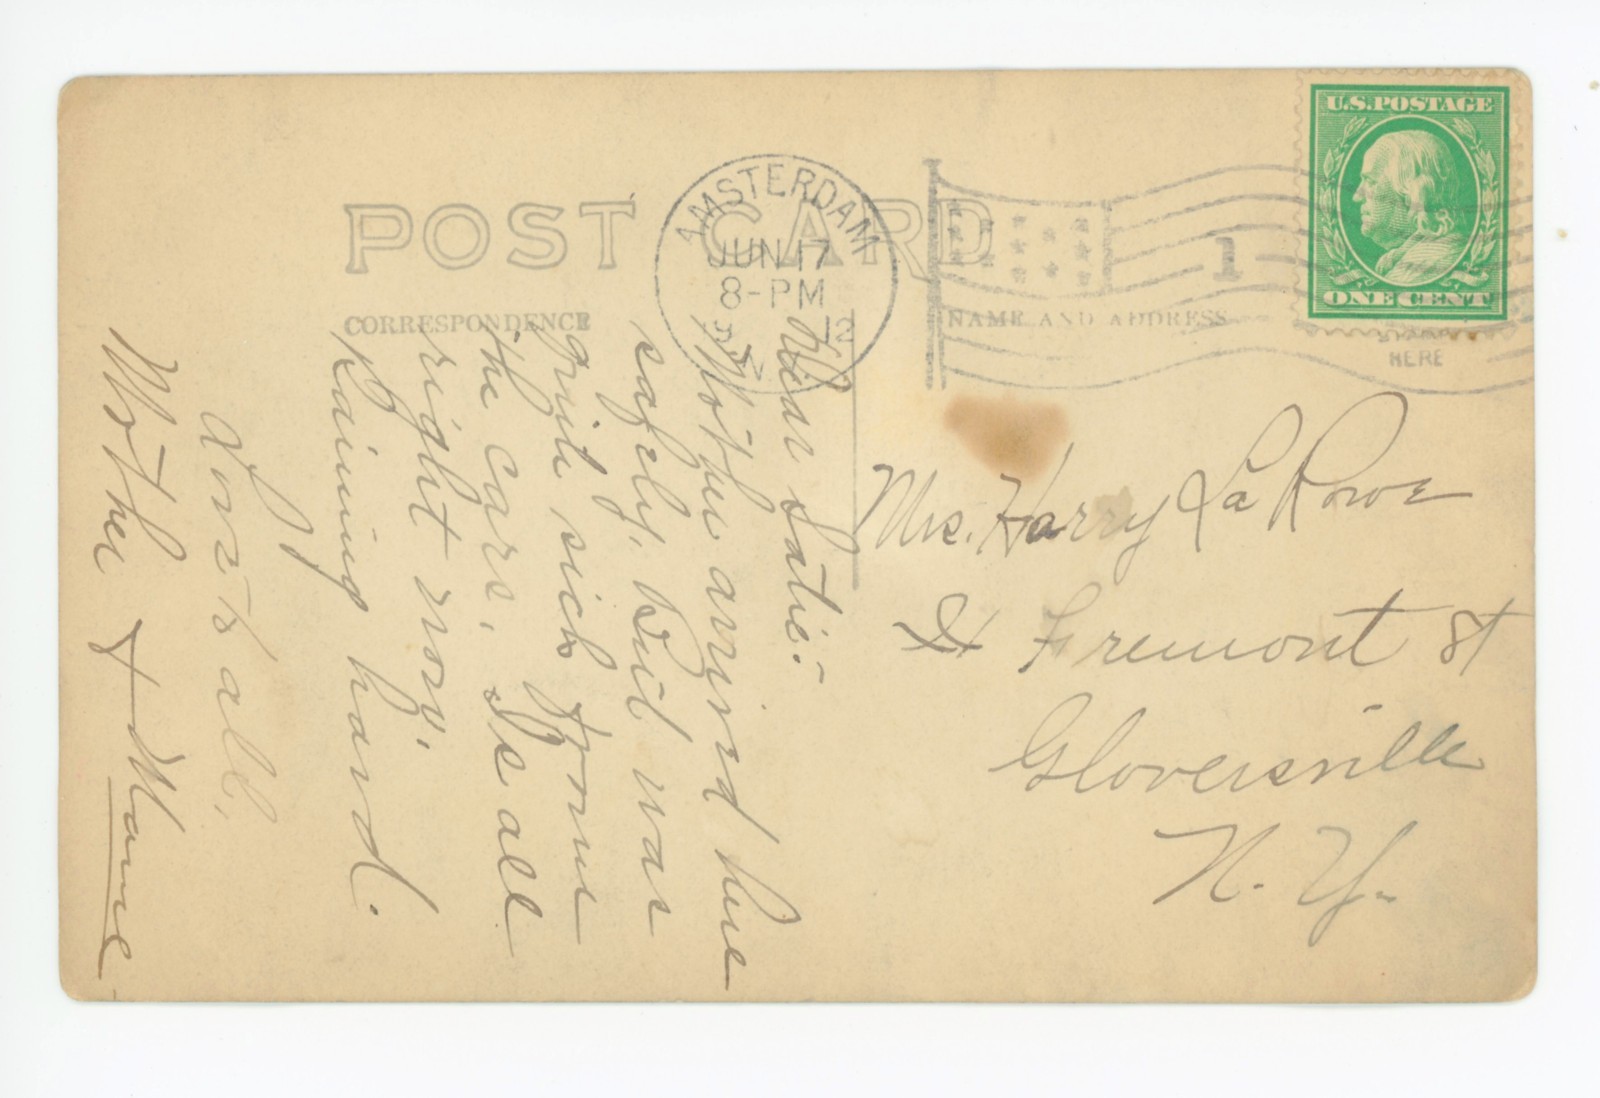 POST CARD
CORRESPONDENCE
NAME AND ADDRESS
AMSTERDAM
JUN 17
8-PM
12
N.
1
U.S. POSTAGE
ONE CENT
HERE
Dear Satie:-
Mother arrived here
safely. But was
quite sick from
the cars. Is all
right now.
Raining hard.
Love to all.
Mother & Mame
Mrs. Harry La Rowe
Fremont St
Gloversville
N. Y.